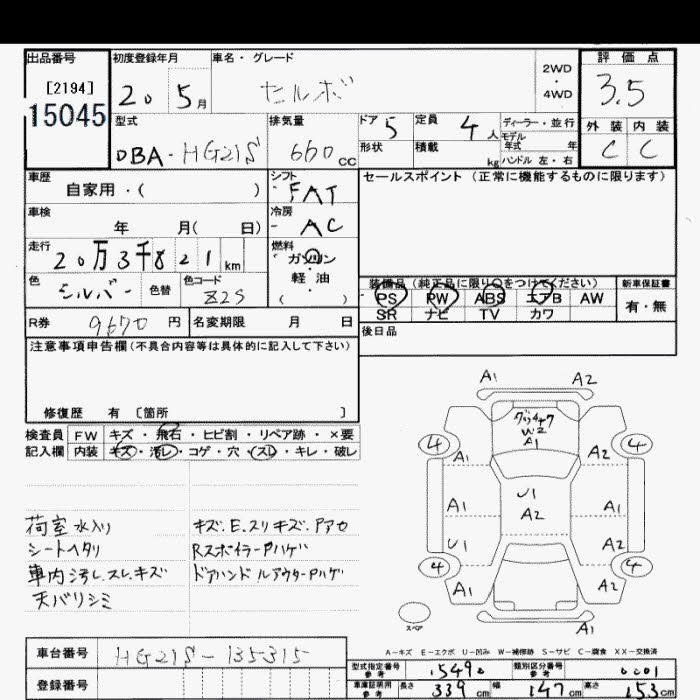 出品番号
[2194]
15045
初度登録年月
20 5月
車名・グレード
セルボ
2WD
・
4WD
評価点
3.5
外装 内装
C C
型式
DBA-HG21S
排気量
660cc
ドア 5
形状
定員 4人
積載 kg
ディーラー・並行
モデル
年式 年
ハンドル 左・右
車歴
自家用・( )
シフト
FAT
セールスポイント (正常に機能するものに限ります)
車検
年 月( 日)
冷房
AC
走行
20万3千821km
燃料
ガソリン
・
軽・油
( )
色
シルバー
色替
色コード
Z2S
装備品(純正品に限り○をつけてください)
PS PW ABS エアB AW
SR ナビ TV カワ
新車保証書
有・無
R券 9670円
名変期限 月 日
後日品
注意事項申告欄(不具合内容等は具体的に記入して下さい)
修復歴 有 〔箇所 〕
検査員
記入欄
FW キズ・飛石・ヒビ割・リペア跡・×要
内装 キズ・汚レ・コゲ・穴・スレ・キレ・破レ
荷室水入り
シートヘタリ
車内汚し.スレ.キズ
天バリシミ
キズ.E.スリキズ.アアセ
RスポイラーPハゲ
ドアハンドルアウターPハゲ
A1 A2
W2
A1
4 4
A1 A2
U1
A2
A1 A1
U1 A2
4 4
A1 A2
A1
スペア
A-キズ E-エクボ U-凹み W-補修跡 S-サビ C-腐食 XX-交換済
車台番号 HG21S-135315
登録番号
型式指定番号
参考
類別区分番号
参考
0001
車庫証明用
参考
長さ 339cm 幅 147cm 高さ 153cm